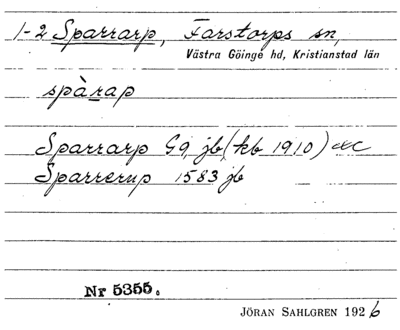 1-2 Sparrarp, Farstorps sn,
Västra Göinge hd, Kristianstad län
spàrap
Sparrarp G9, jb (kb 1910) etc
Sparrerup 1583 jb
Nr 5355.
JÖRAN SAHLGREN 1926